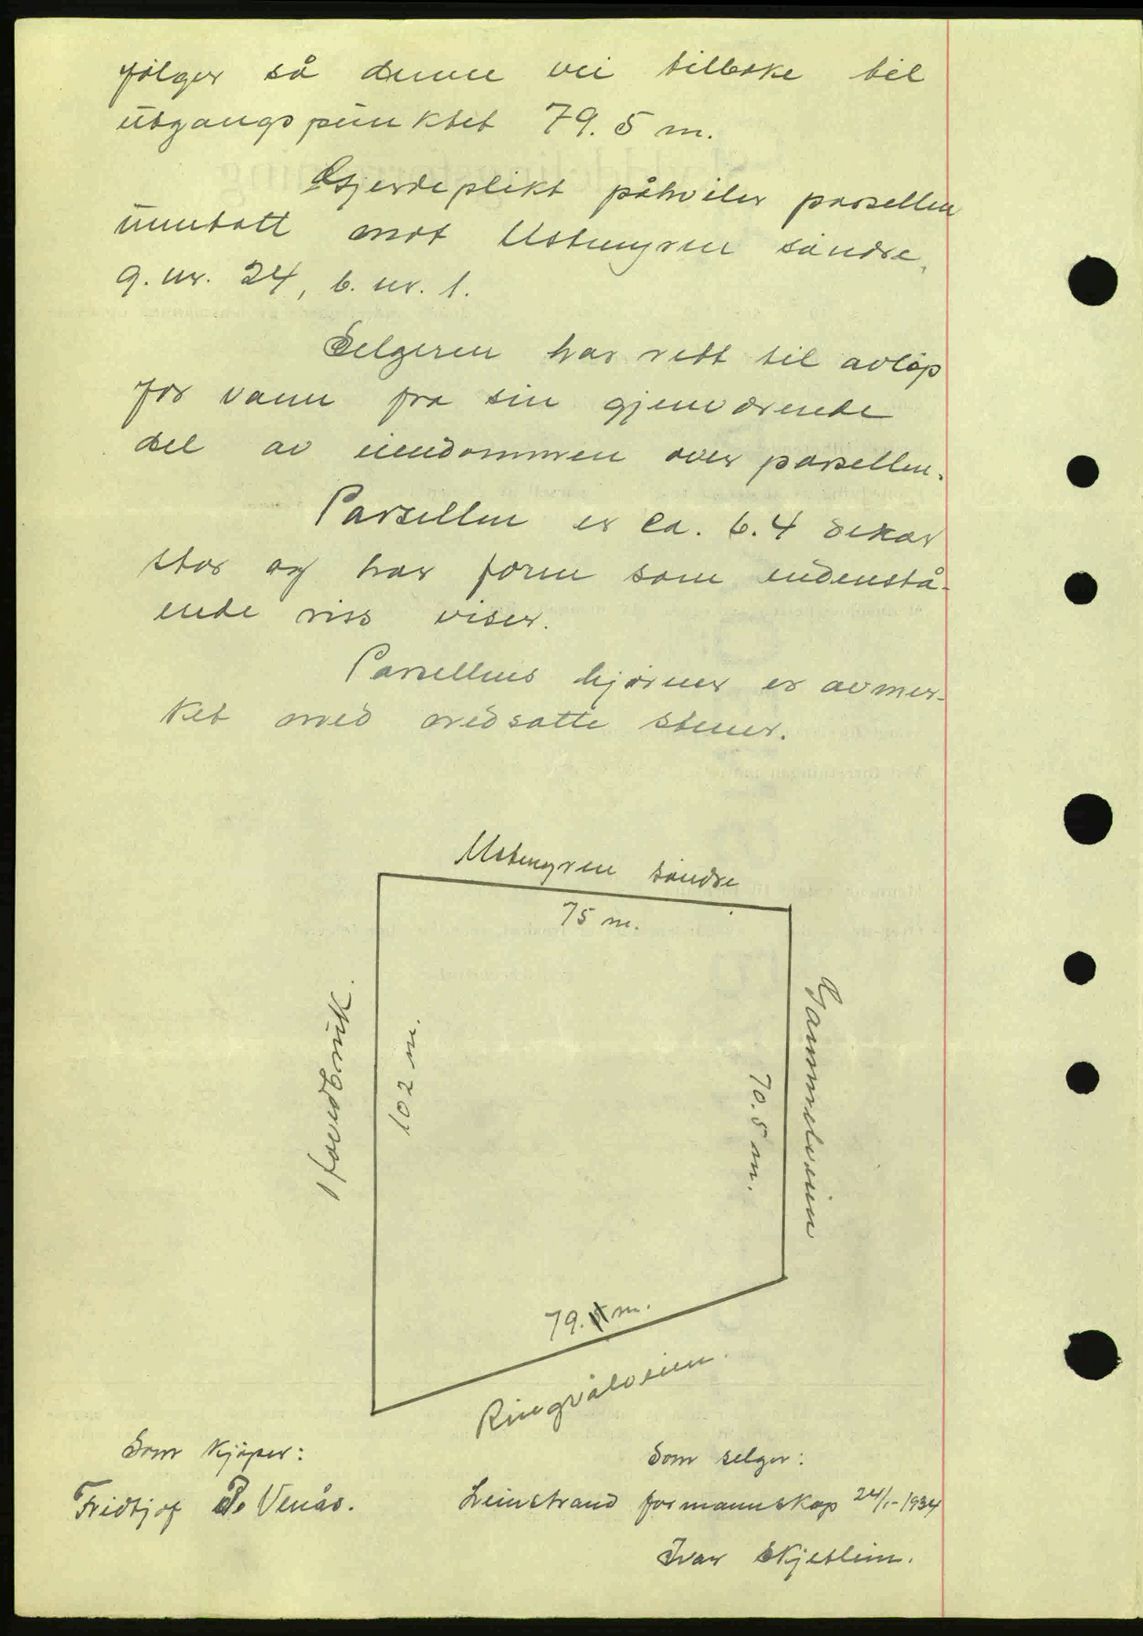 følger så denne vei tilbake til
utgangspunktet 79.5 m.
Gjerdeplikt påhviler parsellen
unntatt mot Ustmyren søndre,
g. nr. 24, b. nr. 1.
Selgeren har rett til avløp
for vann fra sin gjenværende
del av eiendommen over parsellen.
Parsellen er ca. 6.4 dekar
stor og har form som undenstå-
ende riss viser.
Parsellens hjørner er avmer-
ket med nedsatte stener.
Ustmyren søndre
75 m.
Hovedbruk.
102 m.
70.5 m.
Gammelveien
79. m.
Ringvålveien.
Som kjøper:
Som selger:
Fridtjof P. Venås.
Leinstrand formannskap 24/1-1934
Ivar Skjetlein.